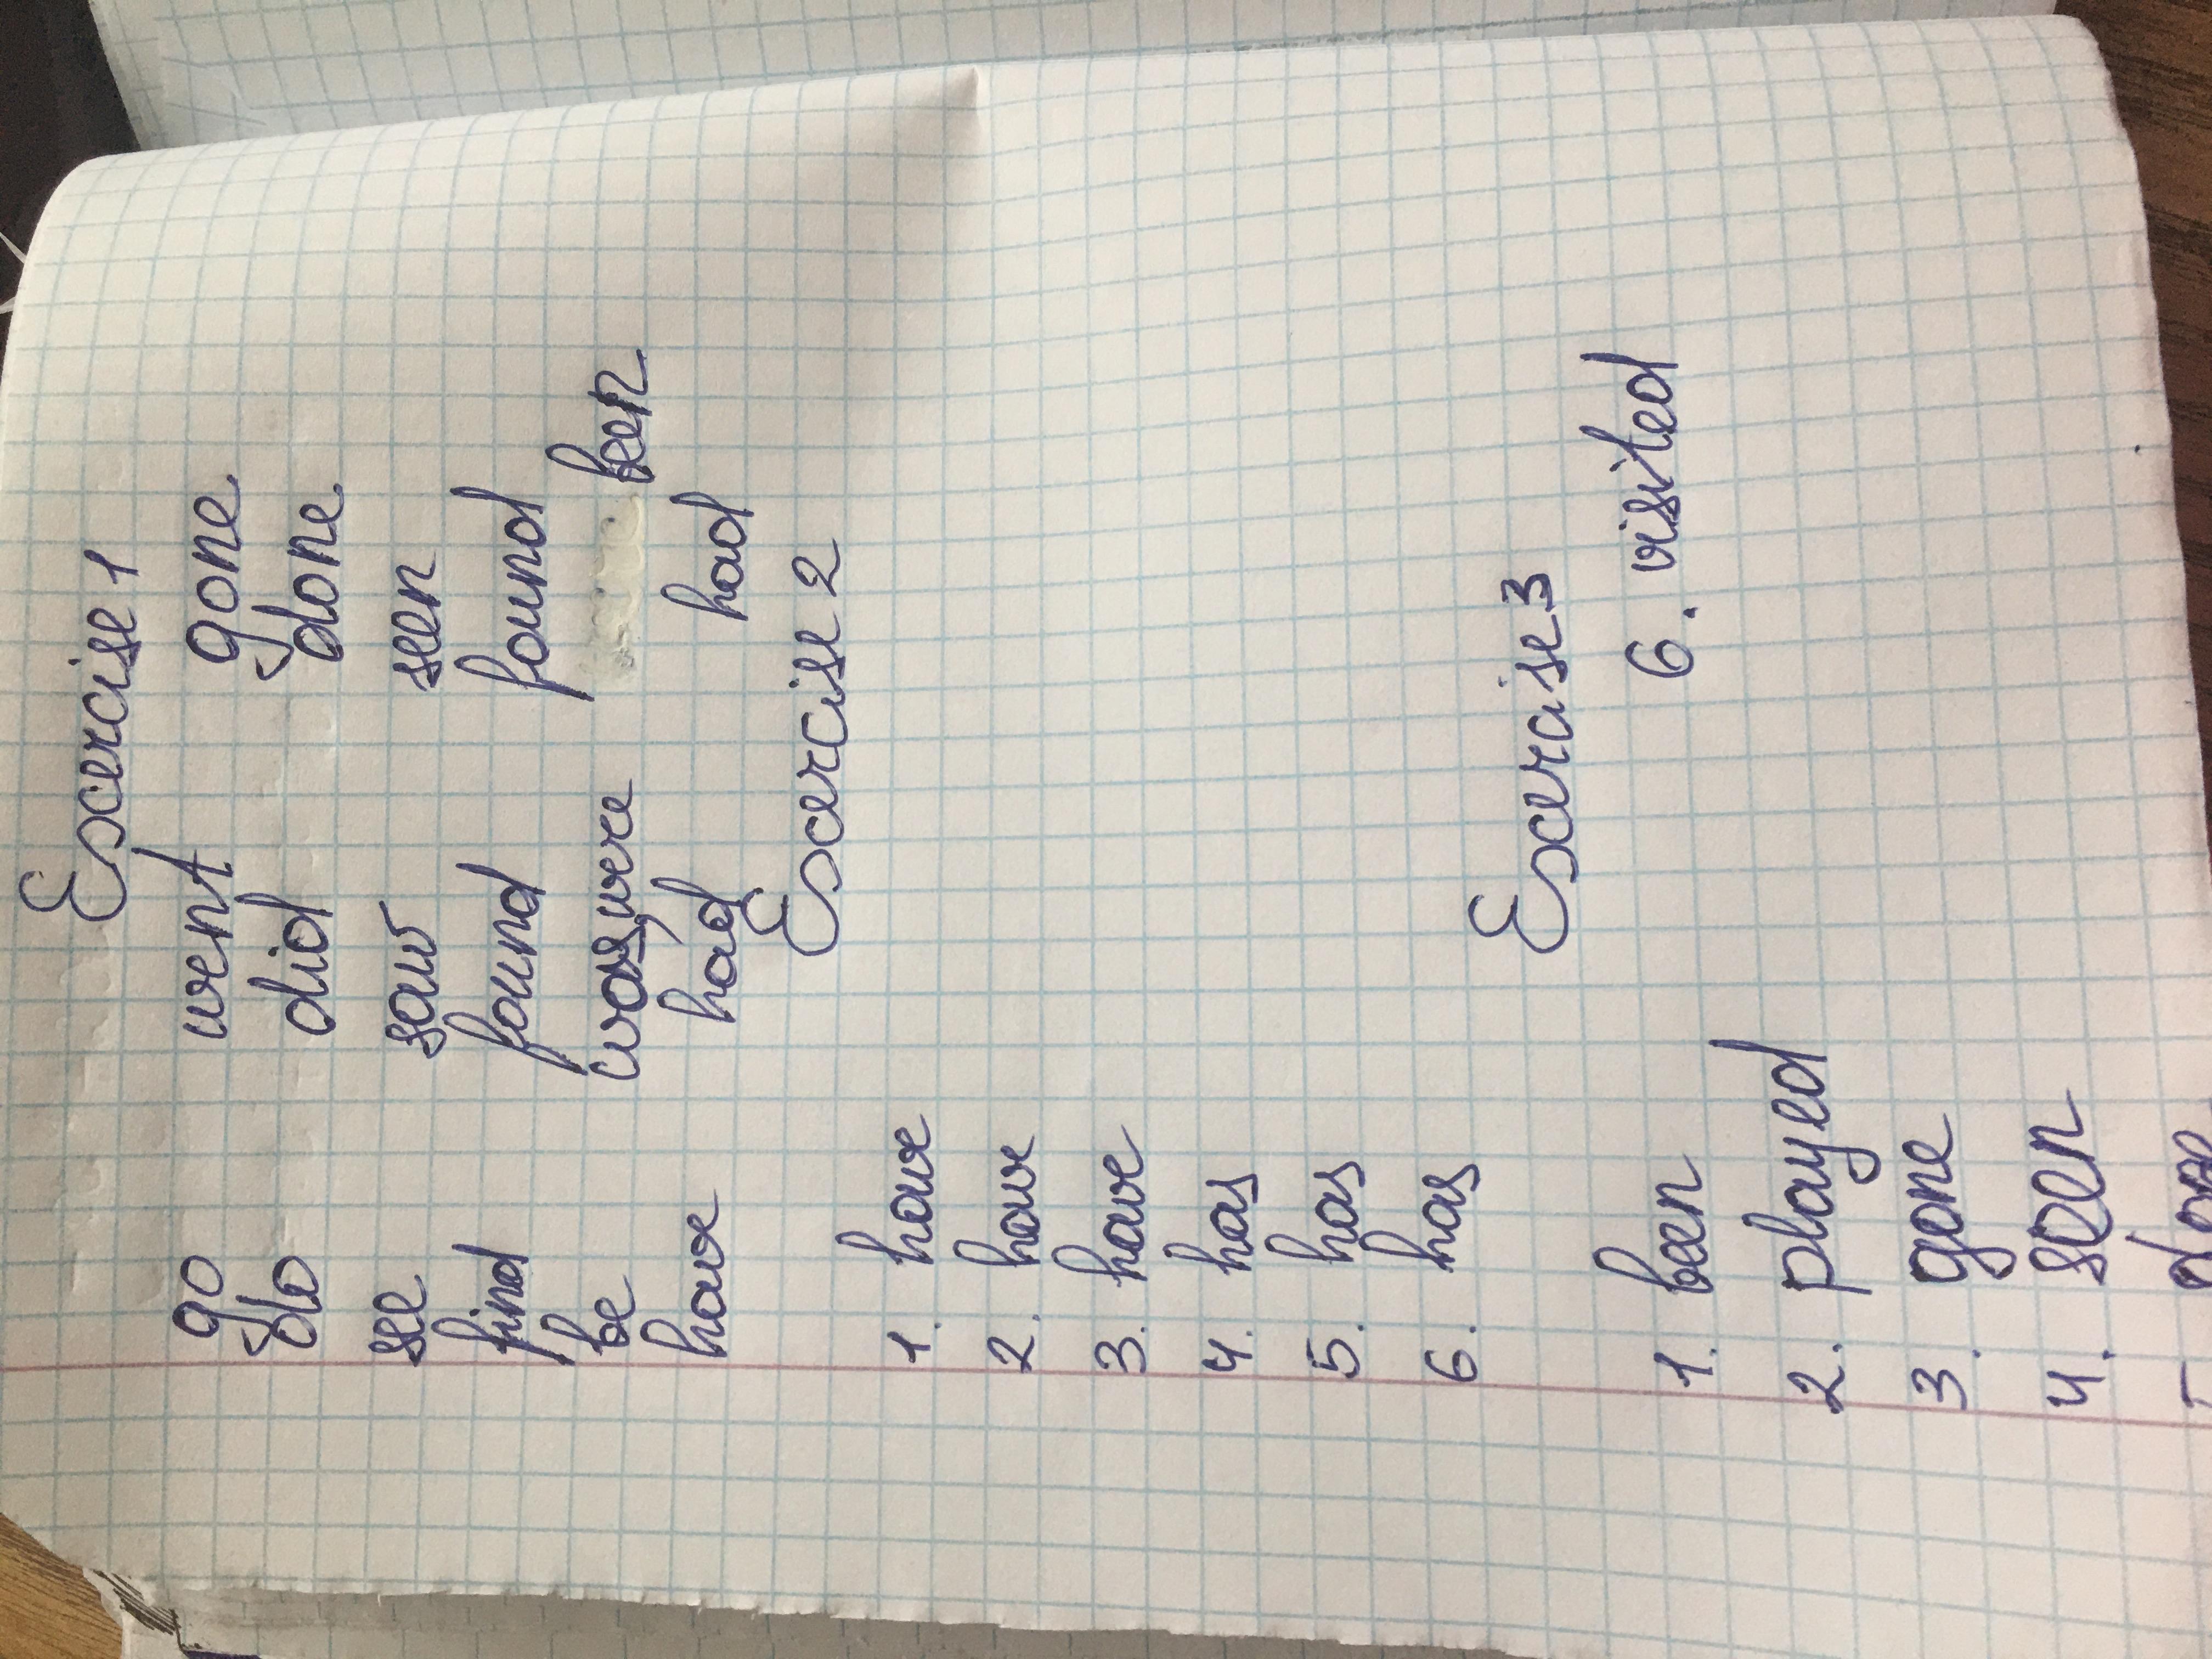 Exercise 1
go went gone
do did done
see saw seen
find found found
be was, were been
have had had
Exercise 2
1. have
2. have
3. have
4. has
5. has
6. has
Exercise 3
1. been 6. visited
2. played
3. gone
4. seen